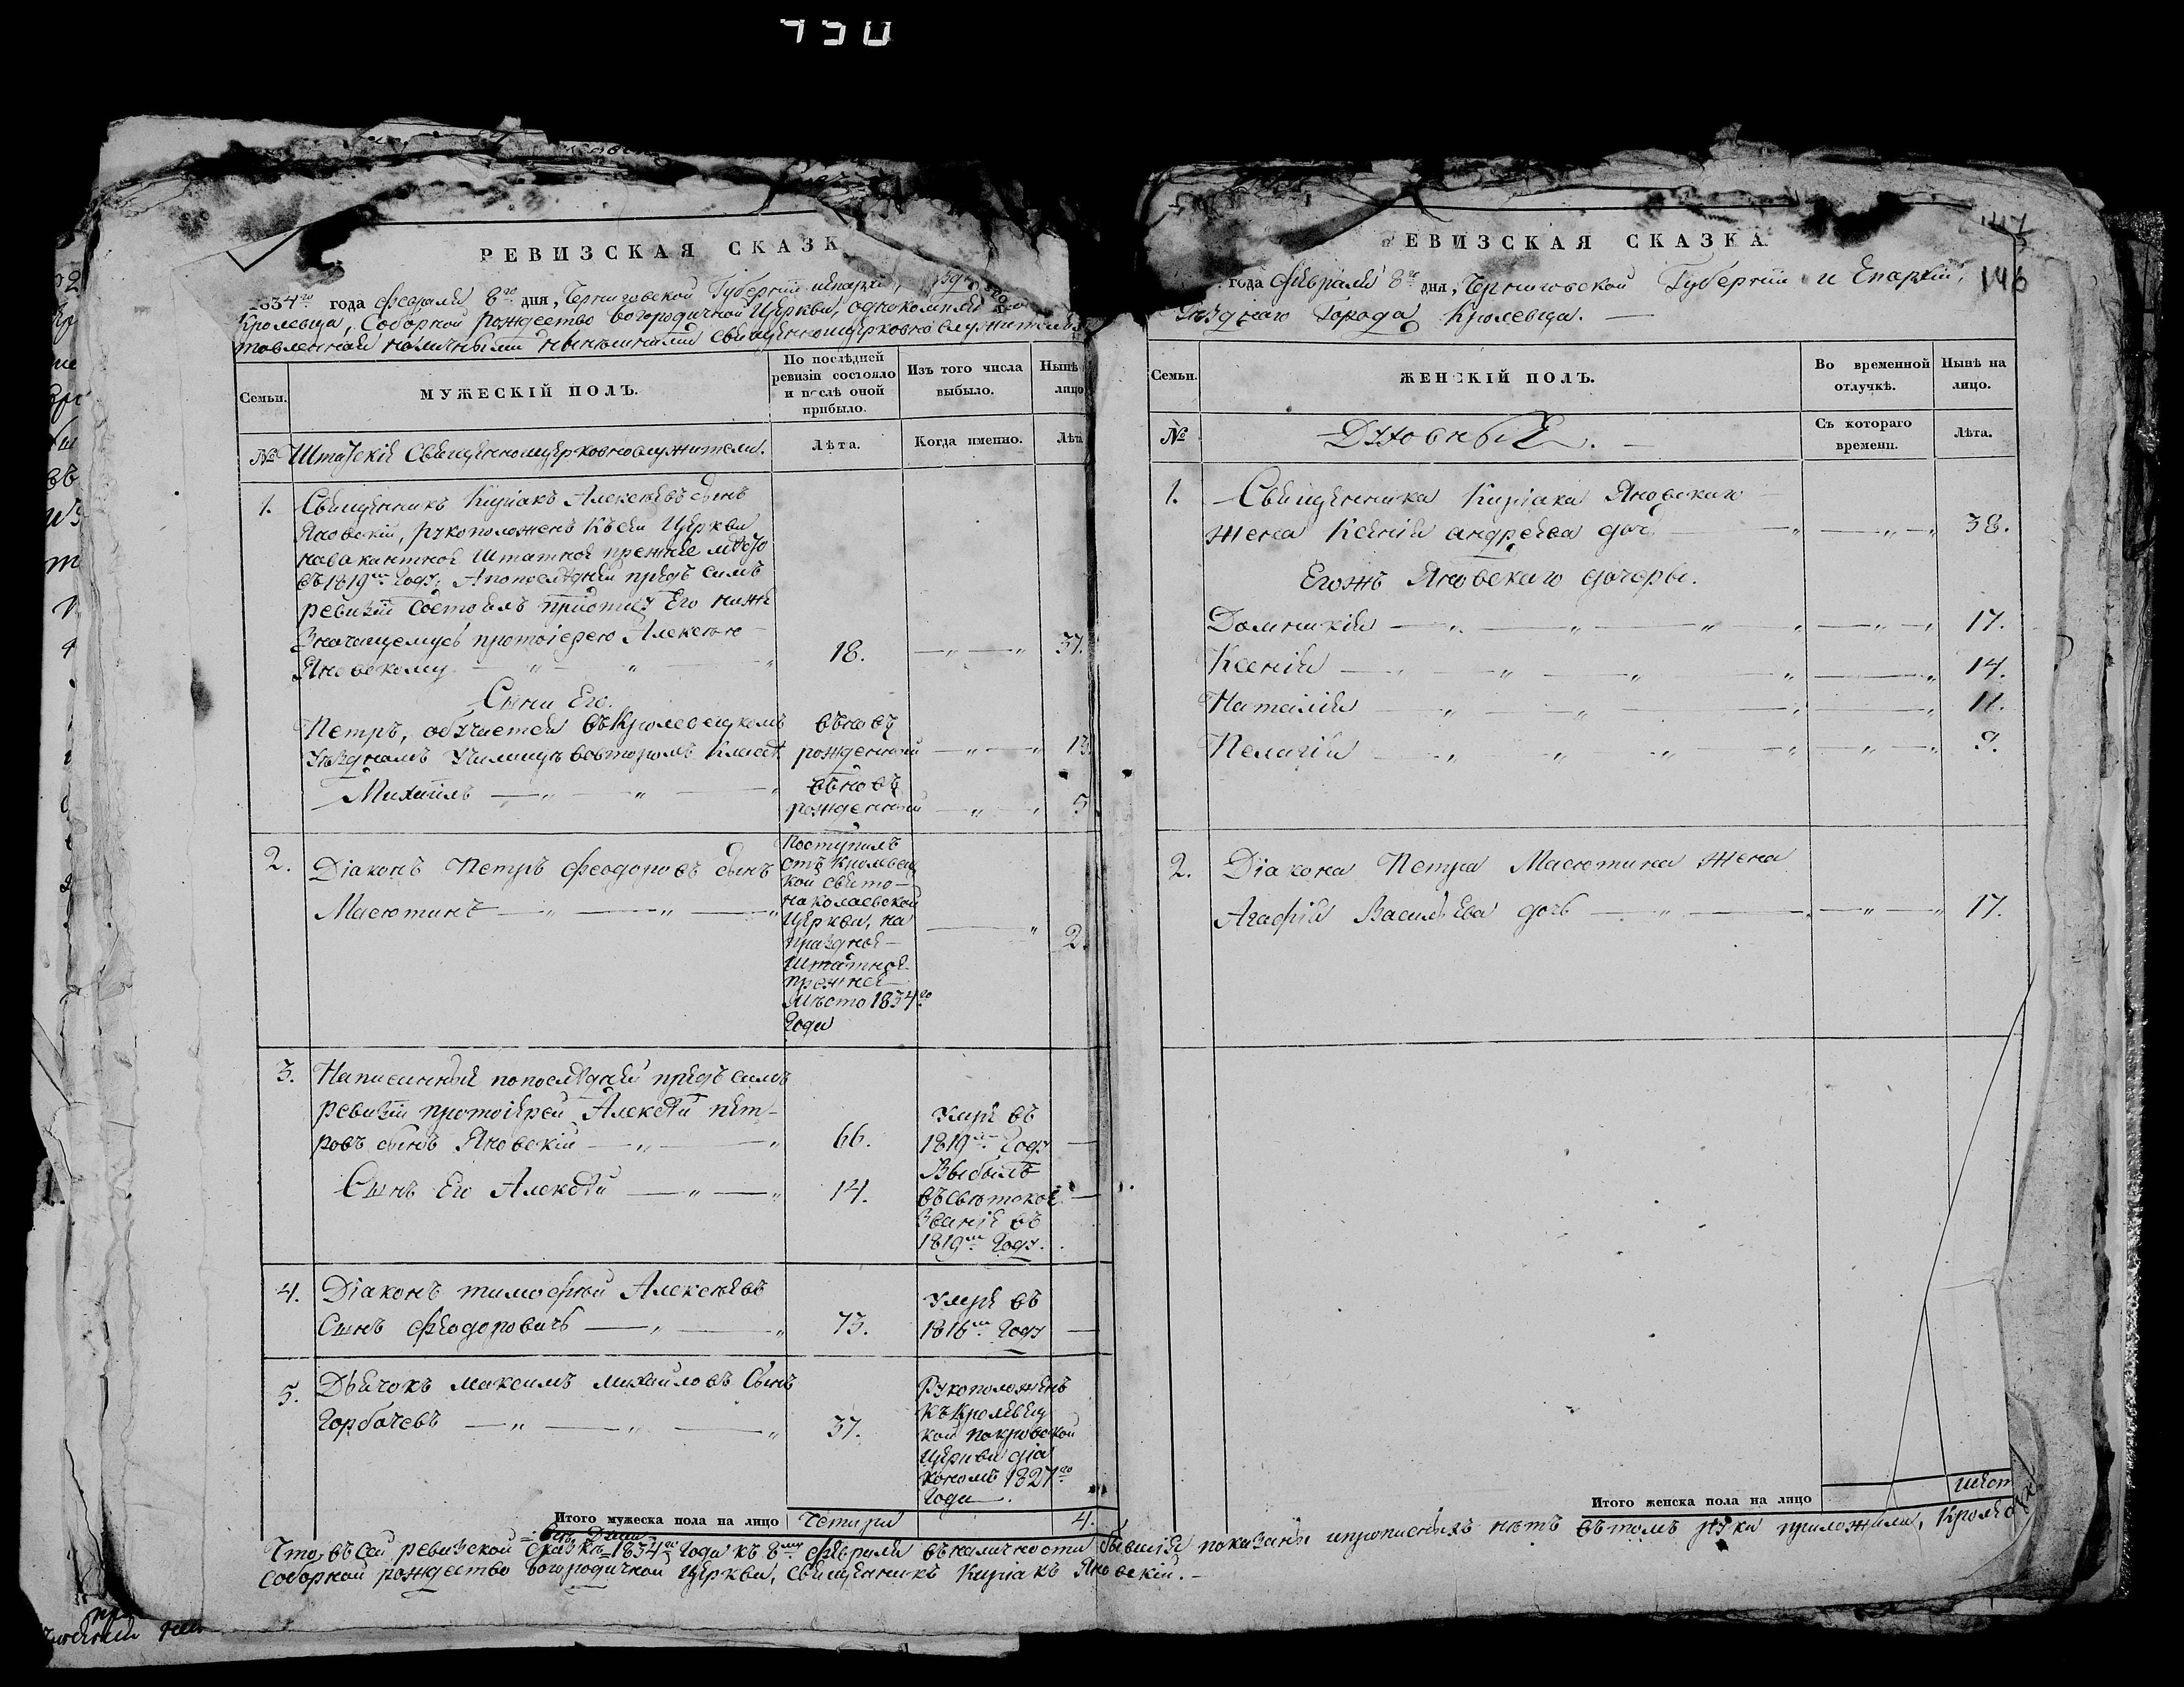 РЕВИЗСКАЯ СКАЗК
1834го года февраля 8го дня, Черниговской Губернии и епархии,
Кролевца, Соборной рождество Богородичной Церкви, однокомплетной
наличными нынешними священноцерковнослужителями
Семьи.
МУЖЕСКІЙ ПОЛЪ.
По послѣдней ревизіи состояло и послѣ оной прибыло.
Изъ того числа выбыло.
Нынѣ лицо
№ Штатскіе Священноцерковнослужители.
Лѣта.
Когда именно.
Лѣта
1. Священникъ Киріакъ Алексѣевъ сынъ
Яновскій, рукоположенъ къ сей Церкви
на вакантное штатное прежнее мѣсто
въ 1819м Году; А по последней предъ симъ
ревизіи состоялъ при отцу Его ниже
значащемусь протоіерею Алексѣю
Яновскому — 18. — 37.
Сыни Его.
Петръ, обучается въ Кролевецкомъ
Уѣздномъ Училищѣ во второмъ класѣ вновь рожденный — 13
Михаилъ — вновь рожденный — 5
2. Діаконъ Петръ Феодоровъ сынъ
Масютинъ —
Поступилъ
отъ Кролевец
кой свято-
николаевской
Церкви, на
праздное
Штатное
прежнее
Мѣсто 1834го
Года
— 2
3. Написанный по последней предъ симъ
ревизіи протоіерей Алексѣй пет-
ровъ сынъ Яновскій — 66. Умре въ 1819м Году —
Сынъ Его Алексѣй — 14. Выбылъ
въ светское
званіе въ
1819м Году.
4. Діаконъ тимофѣй Алексѣевъ
Сынъ Феодоровичъ — 73. Умре въ 1816м Году —
5. Дьячокъ максимъ михайловъ Сынъ
Горбачевъ — 37.
Рукоположенъ
къ Кролевец
кой покровской
Церкви діа
кономъ 1827го
Года.
Итого мужеска пола на лицо Четыри 4.
РЕВИЗСКАЯ СКАЗКА.
147
146
года февраля 8го дня, Черниговской Губерніи и Епархіи,
Уезднаго Города Кролевца.
Семьи.
ЖЕНСКІЙ ПОЛЪ.
Во временной отлучкѣ.
Нынѣ на лицо.
№
Духовные.
Съ котораго времени.
Лѣта.
1. Священника Киріака Яновскаго
жена Ксенія андреева дочь — 38.
Егожъ Яновскаго дочеры.
Домникія — 17.
Ксенія — 14.
Наталія — 11.
Пелагія — 9.
2. Діакона Петра Масютина жена
Агафія Васильева дочь — 17.
Итого женска пола на лицо шесть
Что, въ сей ревизской Сказкѣ 1834го Года къ 8му февраля въ наличности бывшіе показаны и прописныхъ нетъ въ томъ руки приложили,
соборной рождество Богородичной Церкви, Священникъ Киріакъ Яновскій.